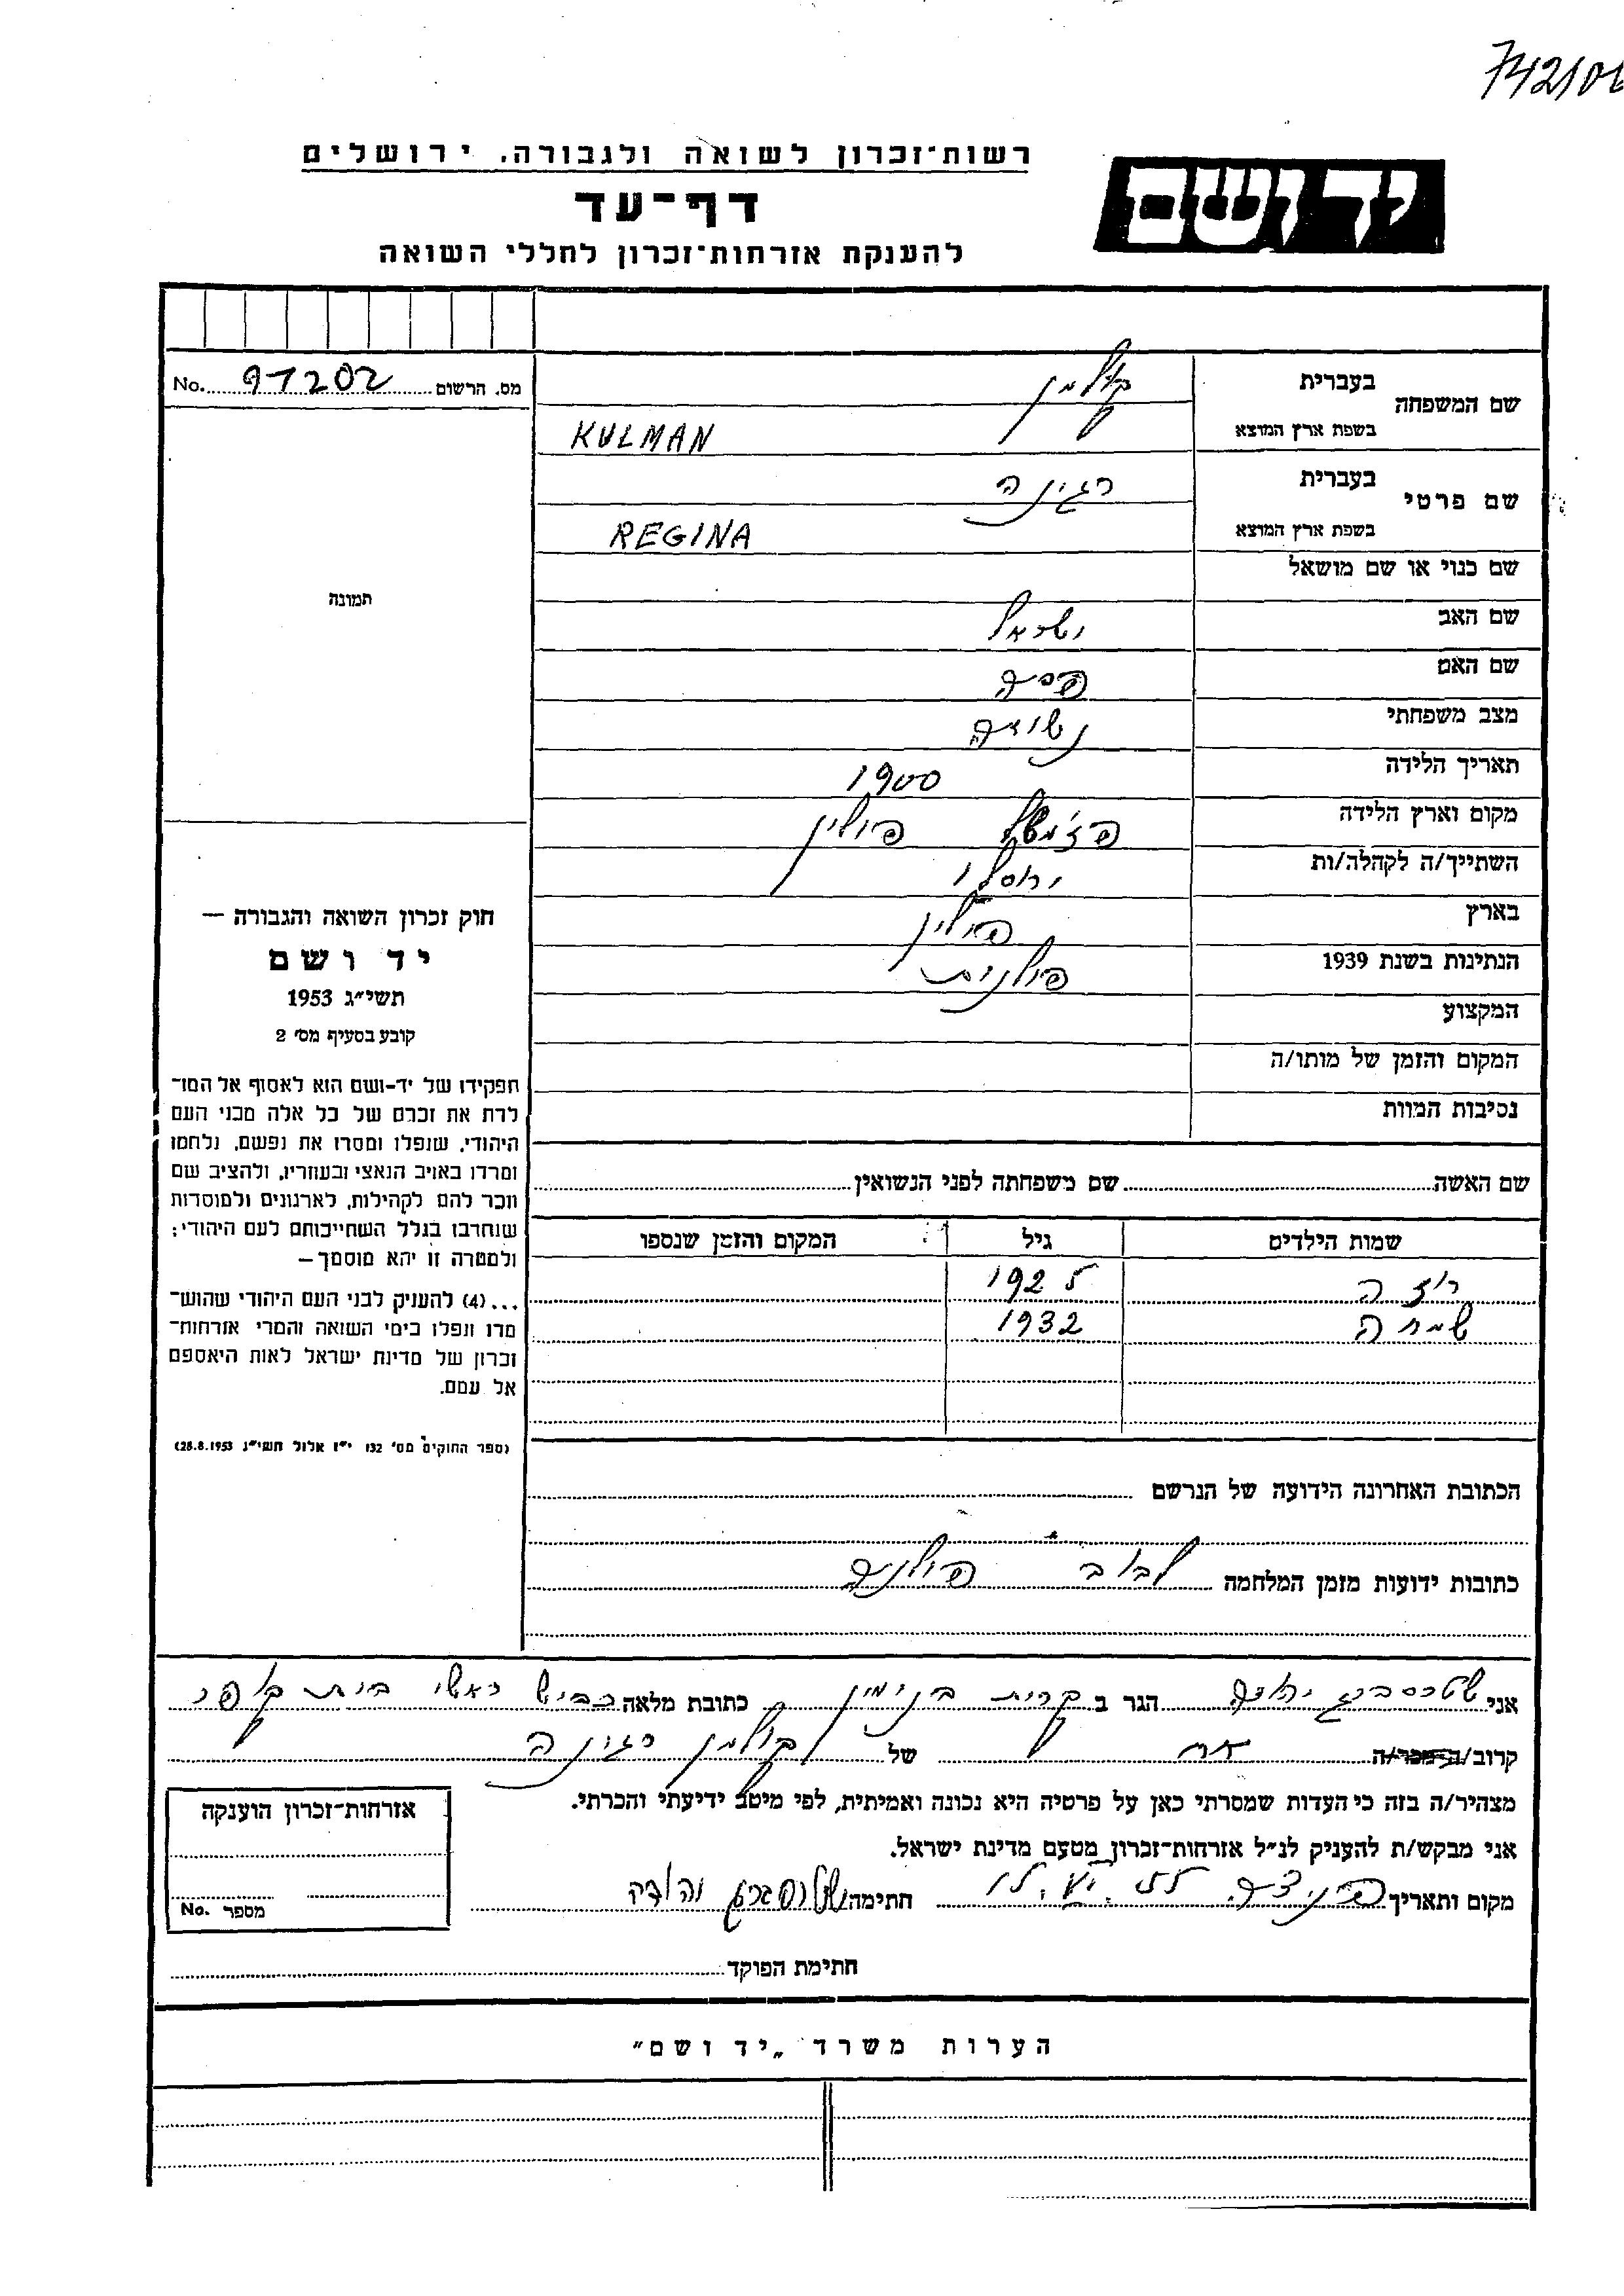 742101
רשות־זכרון לשואה ולגבורה, ירושלים
יד ושם
דף־עד
להענקת אזרחות־זכרון לחללי השואה
מס. הרשום No. 97202
שם המשפחה בעברית קולמן
בשפת ארץ המוצא KULMAN
שם פרטי בעברית רגינה
בשפת ארץ המוצא REGINA
שם כנוי או שם מושאל
תמונה
שם האב ישראל
שם האם
מצב משפחתי נשואה
תאריך הלידה 1900
מקום וארץ הלידה פז'משל פולין
השתייך/ה לקהלה/ות ירוסלו
בארץ פולין
הנתינות בשנת 1939 פולנית
המקצוע
המקום והזמן של מותו/ה
נסיבות המוות
חוק זכרון השואה והגבורה —
יד ושם
תשי"ג 1953
קובע בסעיף מס' 2
תפקידו של יד-ושם הוא לאסוף אל המו־
לדת את זכרם של כל אלה מבני העם
היהודי, שנפלו ומסרו את נפשם, נלחמו
ומרדו באויב הנאצי ובעוזריו, ולהציב שם
וזכר להם לקהילות, לארגונים ולמוסדות
שנחרבו בגלל השתייכותם לעם היהודי;
ולמטרה זו יהא מוסמך—
...(4) להעניק לבני העם היהודי שהוש־
מדו ונפלו בימי השואה והמרי אזרחות־
זכרון של מדינת ישראל לאות היאספם
אל עמם.
(ספר החוקים מס' 132 י"ז אלול תשי"ג 28.8.1953)
שם האשה שם משפחתה לפני הנשואין
שמות הילדים גיל המקום והזמן שנספו
רוזה
שמחה 1932
הכתובת האחרונה הידועה של הנרשם
כתובות ידועות מזמן המלחמה לבוב
אני שטרסברג יהודה הגר ב קרית בנימין כתובת מלאה כביש ראשי בית קופרי
קרוב/ה מכר/ה אח של קולמן רגינה
מצהיר/ה בזה כי העדות שמסרתי כאן על פרטיה היא נכונה ואמיתית, לפי מיטב ידיעתי והכרתי.
אני מבקש/ת להעניק לנ"ל אזרחות־זכרון מטעם מדינת ישראל.
מקום ותאריך חתימה
חתימת הפוקד
אזרחות־זכרון הוענקה
מספר No.
הערות משרד „יד ושם"